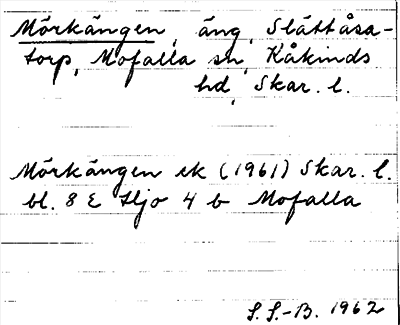 Mörkängen, äng, Slättåsa-
torp, Mofalla sn, Kåkinds
hd, Skar. l.
Mörkängen ek (1961) Skar. l.
bl. 8 E Hjo 4 b Mofalla
S. S.-B. 1962